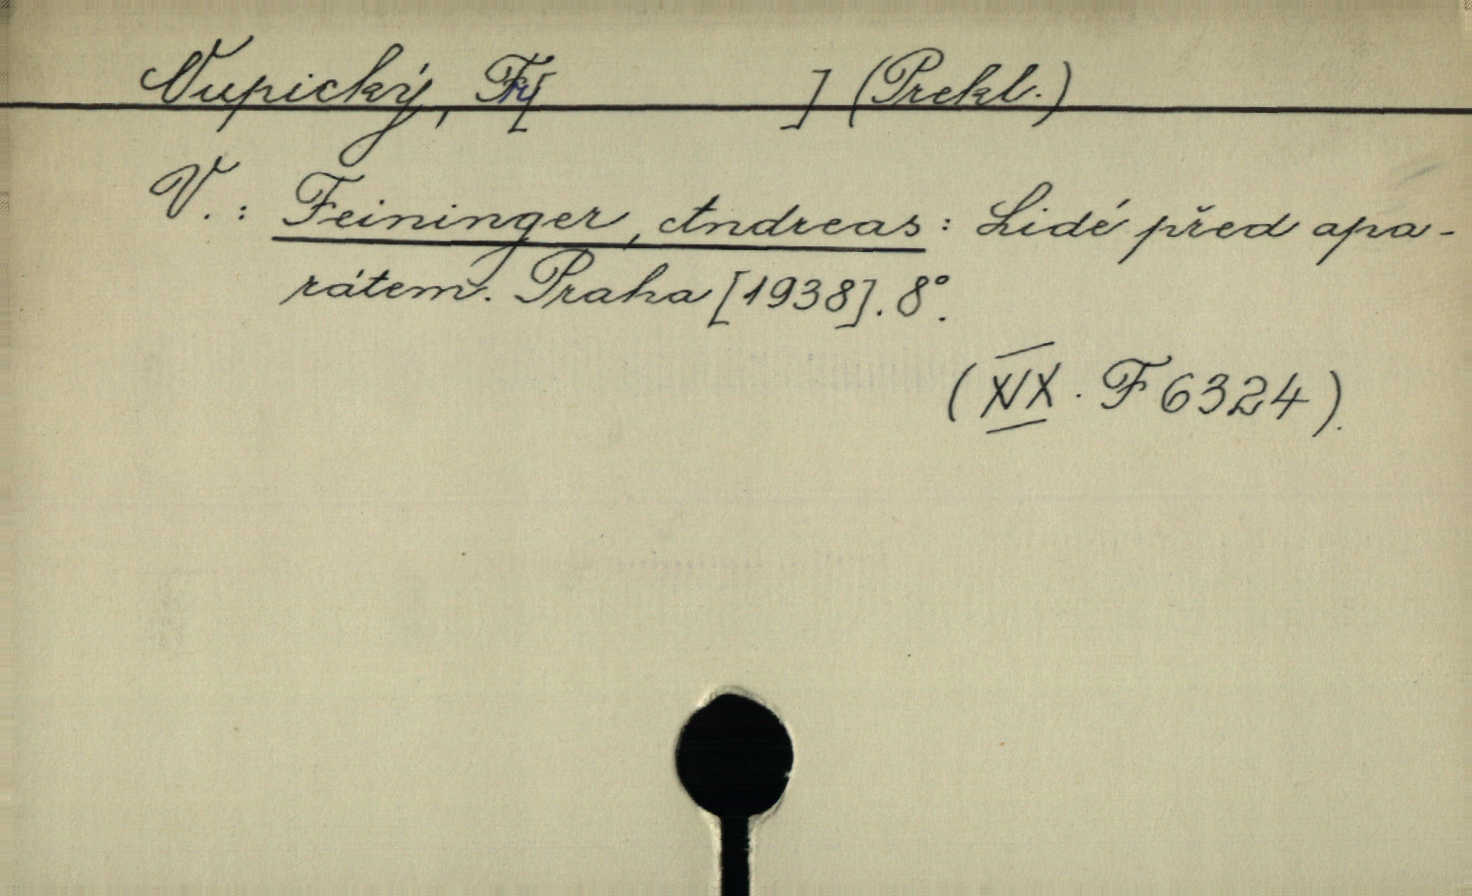 Vupický, Fr[ ] (Prekl.)
V.: Feininger, Andreas: Lidé před apa-
rátem. Praha [1938]. 8°.
(XIX. F 6324).